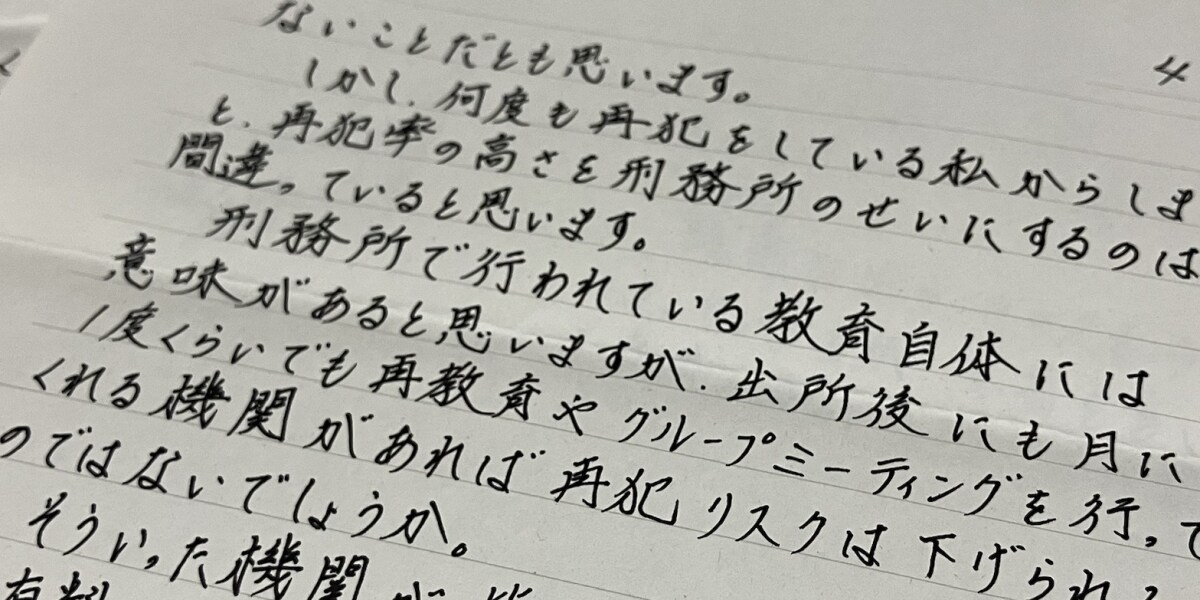 4
ないことだとも思います。
しかし、何度も再犯をしている私からしま
と、再犯率の高さを刑務所のせいにするのは
間違っていると思います。
刑務所で行われている教育自体には
意味があると思いますが、出所後にも月に
1度くらいでも再教育やグループミーティングを行って
くれる機関があれば再犯リスクは下げられる
のではないでしょうか。
そういった機関が
有料